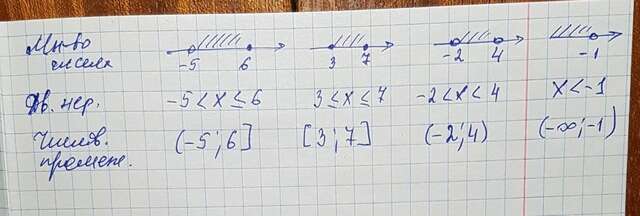 Мн-во
чисел
-5 6 3 7 -2 4 -1
Дв. нер. -5 < x ≤ 6 3 ≤ x ≤ 7 -2 < x < 4 x < -1
Числов. (-5; 6] [3; 7] (-2; 4) (-∞; -1)
промеж.